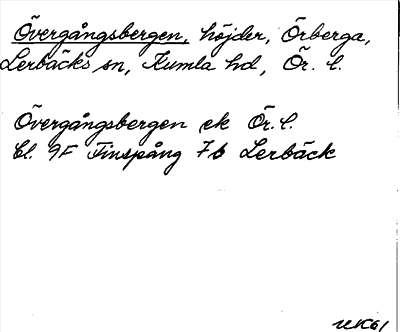 Övergångsbergen, höjder, Örberga,
Lerbäcks sn, Kumla hd, Ör. l.
Övergångsbergen ek Ör. l.
bl. 9F Finspång 7b Lerbäck